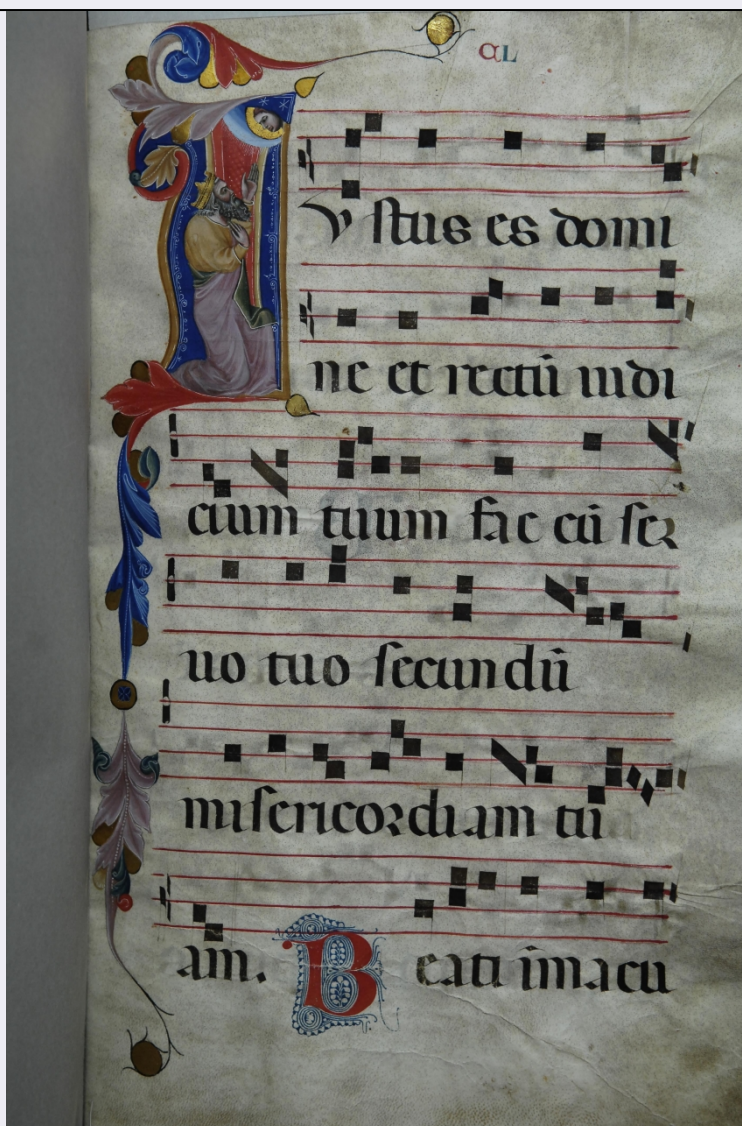 CL
IVstus es domi
ne et rectū iudi
cium tuum fac cū ser
uo tuo secundū
misericordiam tu
am. Beati īmacu